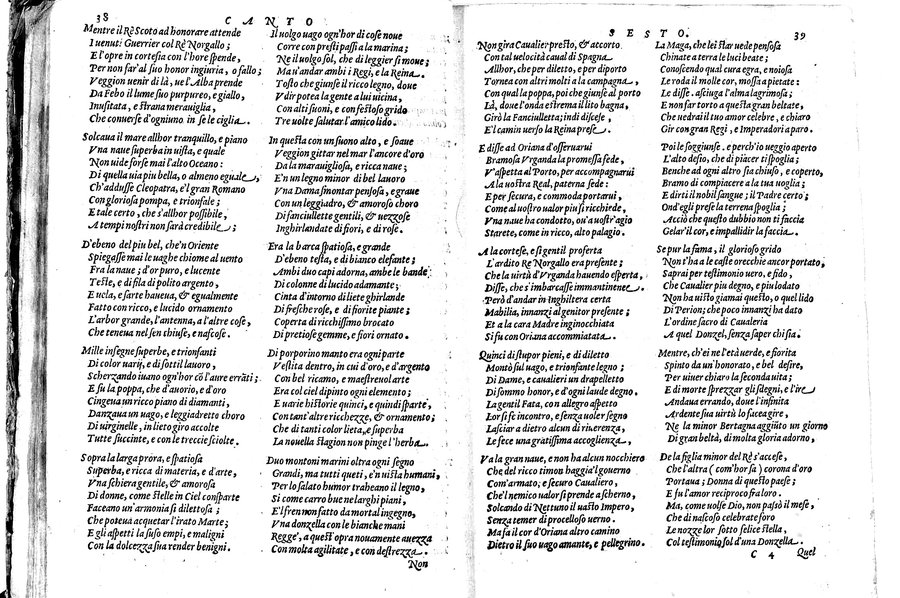 38 CANTO
Mentre il Rè Scoto ad honorare attende
I uenuti Guerrier col Rè Norgallo;
E l'opre in cortesia con l'hore spende,
Per non far'al suo honor ingiuria, o fallo;
Veggion uenir di là, ue l'Alba prende
Da Febo il lume suo purpureo, e giallo,
Inusitata, e strana merauiglia,
Che conuerse d'ogniuno in se le ciglia.
Solcaua il mare allhor tranquillo, e piano
Vna naue superba in uista, e quale
Non uide forse mai l'alto Oceano:
Di quella uia piu bella, o almeno eguale,
Ch'addusse Cleopatra, e'l gran Romano
Con gloriosa pompa, e trionfale;
E tale certo, che s'allhor possibile,
A tempi nostri non sarà credibile;
D'ebeno del piu bel, che'n Oriente
Spiegasse mai le uaghe chiome al uento
Fra la naue; d'or puro, e lucente
Teste, e di fila di polito argento,
E uela, e sarte haueua, & egualmente
Fatto con ricco, e lucido ornamento
L'arbor grande, l'antenna, a l'altre cose,
Che teneua nel sen chiuse, e nascose.
Mille insegne superbe, e trionfanti
Di color uarij, e di sottil lauoro,
Scherzando iuano ogn'hor cō l'aure errāti;
E su la poppa, che d'auorio, e d'oro
Cingeua un ricco piano di diamanti,
Danzaua un uago, e leggiadretto choro
Di uirginelle, in lieto giro accolte
Tutte succinte, e con le treccie sciolte.
Sopra la larga prora, e spatiosa
Superba, e ricca di materia, e d'arte,
Vna schiera gentile, & amorosa
Di donne, come stelle in Ciel consparte
Faceano un'armonia si dilettosa;
Che poteua acquetar l'irato Marte;
E gli aspetti la suso empi, e maligni
Con la dolcezza sua render benigni.
Il uolgo uago ogn'hor di cose noue
Corre con presti passi a la marina;
Ne il uolgo sol, che di leggier si moue;
Ma u'andar ambi i Regi, e la Reina.
Tosto che giunse il ricco legno, doue
V dir potea la gente a lui uicina,
Con alti suoni, e con festoso grido
Tre uolte salutar l'amico lido.
In questa con un suono alto, e soaue
Veggion gittar nel mar l'ancore d'oro
Da la marauigliosa, e ricca naue;
E'n un legno minor di bel lauoro
Vna Dama smontar pensosa, e graue
Con un leggiadro, & amoroso choro
Di fanciullette gentili, & uezzose
Inghirlandate di fiori, e di rose.
Era la barca spatiosa, e grande
D'ebeno testa, e di bianco elefante;
Ambi duo capi adorna, ambe le bande
Di colonne di lucido adamante;
Cinta d'intorno di liete ghirlande
Di fresche rose, e di fiorite piante;
Coperta di ricchissimo brocato
Di pretiose gemme, e fiori ornato.
Di porporino manto era ogni parte
Vestita dentro, in cui d'oro, e d'argento
Con bel ricamo, e maestreuol arte
Era col ciel dipinto ogni elemento;
E uarie historie quinci, e quindi sparte,
Con tant'altre ricchezze, & ornamento;
Che di tanti color lieta, e superba
La nouella stagion non pinge l'herba.
Duo montoni marini oltra ogni segno
Grandi, ma tutti queti, e'n uista humani,
Per lo salato humor traheano il legno,
Si come carro bue ne larghi piani,
E'l fren non fatto da mortal ingegno,
Vna donzella con le bianche mani
Regge', a quest'opra nouamente auezza
Con molta agilitate, e con destrezza.
Non
SESTO. 39
Non gira Caualier presto, & accorto
Con tal uelocità caual di Spagna
Allhor, che per diletto, e per diporto
Tornea con altri molti a la campagna,
Con qual la poppa, poi che giunse al porto
Là, doue l'onda estrema il lito bagna,
Girò la Fanciulletta; indi discese,
E'l camin uerso la Reina prese.
E disse ad Oriana d'osseruarui
Bramosa Vrganda la promessa fede,
V'aspetta al Porto, per accompagnarui
A la uostra Real, paterna sede:
E per secura, e commoda portarui,
Come al uostro ualor piu si richiede,
Vna naue ha condotto, ou'a uostr'agio
Starete, come in ricco, alto palagio.
A la cortese, e si gentil proferta
L'ardito Re Norgallo era presente;
Che la uirtù d'Vrganda hauendo esperta,
Disse, che s'imbarcasse immantinente.
Però d'andar in Inghiltera certa
Mabilia, innanzi al genitor presente;
Et a la cara Madre inginocchiata
Si fu con Oriana accommiatata.
Quinci di stupor pieni, e di diletto
Montò sul uago, e trionfante legno;
Di Dame, e caualieri un drapelletto
Di sommo honor, e d'ogni laude degno.
La gentil Fata, con allegro aspetto
Lor si fe incontro, e senza uoler segno
Lasciar a dietro alcun di riuerenza,
Le fece una gratissima accoglienza,
Va la gran naue, e non ha alcun nocchiero
Che del ricco timon baggia'l gouerno
Com'armato, e securo Caualiero,
Che'l nemico ualor si prende a scherno,
Solcando di Nettuno il uasto Impero,
Senza temer di procelloso uerno.
Ma fa il cor d'Oriana altro camino
Dietro il suo uago amante, e pellegrino.
La Maga, che lei star uede pensosa
Chinate a terra le luci beate;
Conoscendo qual cura egra, e noiosa
Le roda il molle cor, mossa a pietate:
Le disse. asciuga l'alma lagrimosa;
E non far torto a questa gran beltate,
Che uedrai il tuo amor celebre, e chiaro
Gir con gran Regi, e Imperadori a paro.
Poi le soggiunse. e perch'io ueggio aperto
L'alto desio, che di piacer ti spoglia;
Benche ad ogni altro sia chiuso, e coperto,
Bramo di compiacere a la tua uoglia;
E dirti il nobil sangue; il Padre certo;
Ond'egli prese la terrena spoglia;
Acciò che questo dubbio non ti faccia
Gelar'il cor, e impallidir la faccia.
Se pur la fama, il glorioso grido
Non t'ha a le caste orecchie ancor portato,
Saprai per testimonio uero, e fido,
Che Caualier piu degno, e piu lodato
Non ha uisto giamai questo, o quel lido
Di Perion; che poco innanzi ha dato
L'ordine sacro di Caualeria
A quel Donzel, senza saper chi sia.
Mentre, ch'ei ne l'età uerde, e fiorita
Spinto da un'honorato, e bel desire,
Per uiuer chiaro la seconda uita;
E di morte sprezzar gli sdegni, e l'ire
Andaua errando, doue l'infinita
Ardente sua uirtù lo facea gire,
Ne la minor Bertagna aggiūto un giorno
Di gran beltà, di molta gloria adorno,
De la figlia minor del Re s'accese,
Che l'altra (com'hor fa) corona d'oro
Portaua; Donna di questo paese;
E fu l'amor reciproco fra loro.
Ma, come uolse Dio, non passò il mese,
Che di nascoso celebrate foro
Le nozze lor sotto felice stella,
Col testimonio sol d'una Donzella.
C 4 Quel